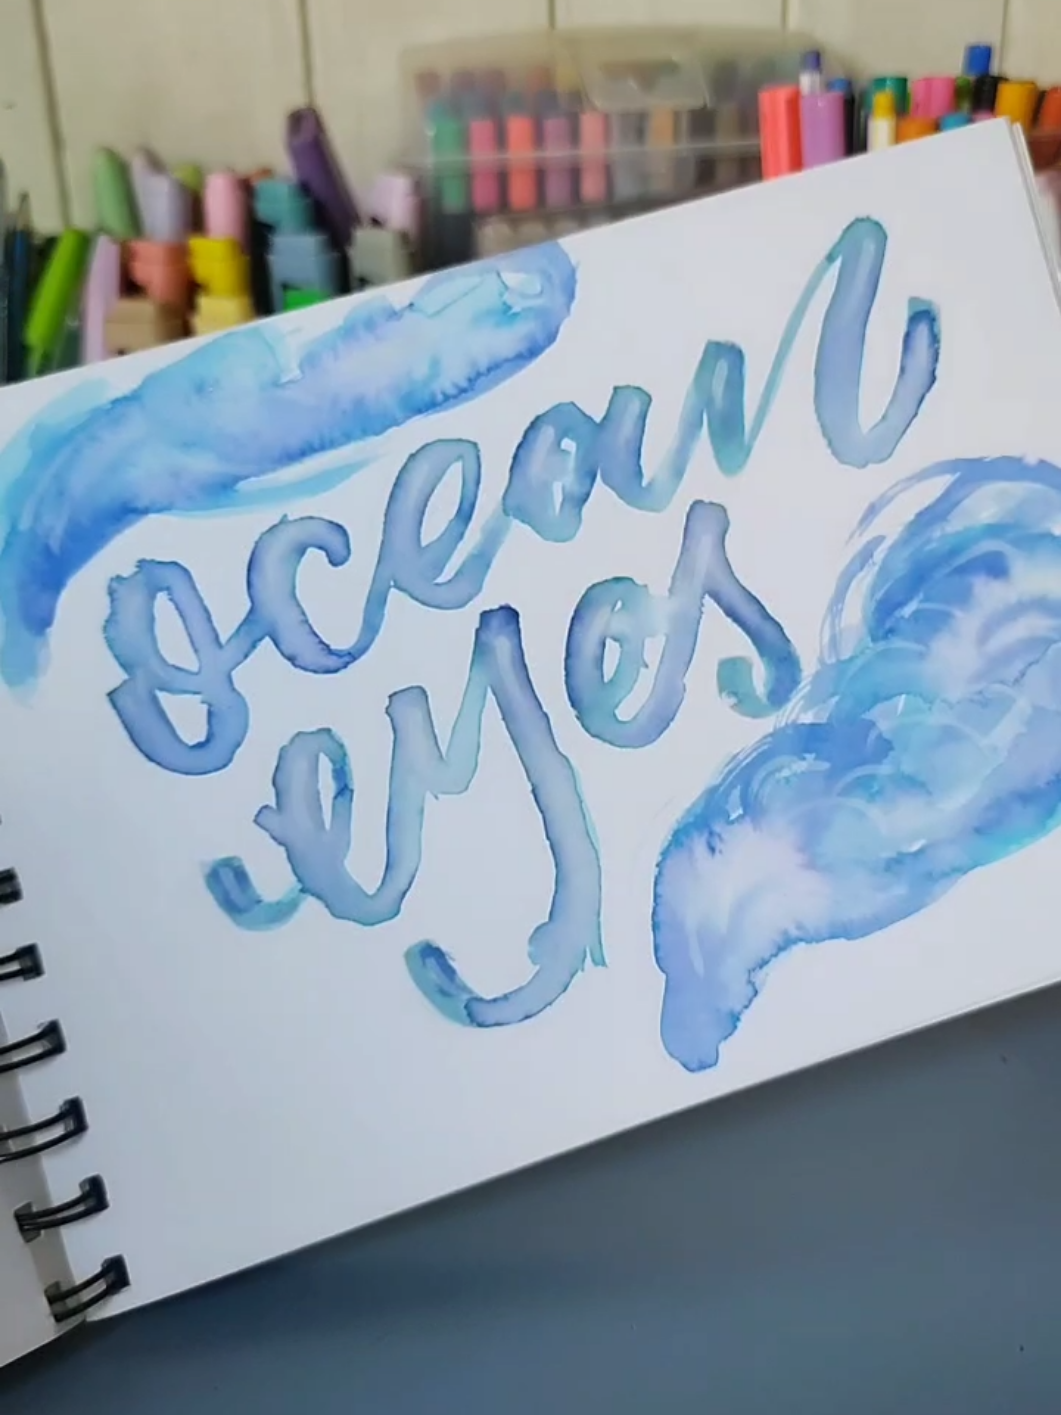 ocean
eyes